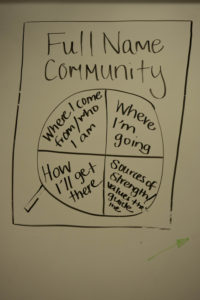 Full Name
Community
Where I come
from/who
I am
Where
I'm
going
How
I'll get
there
Sources of
Strength/
values that
guide
me